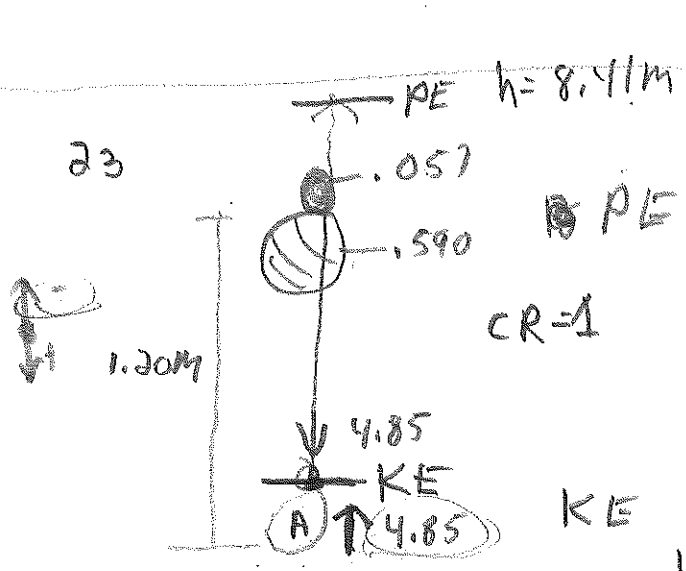 PE h= 8.41m
23
.057
PE
.590
CR=1
1.20M
4.85
KE
A 4.85
KE